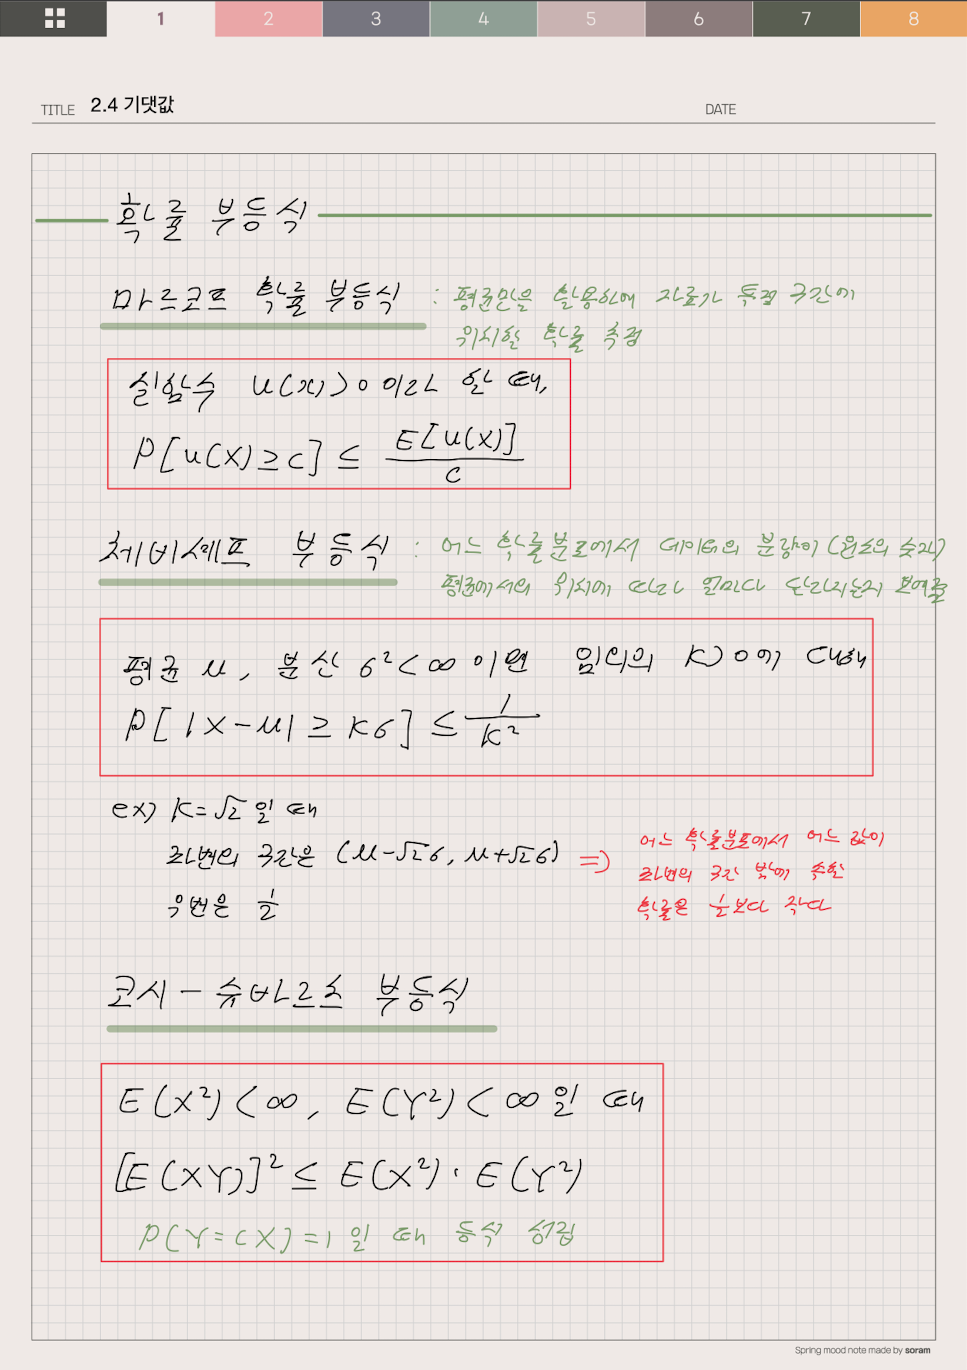 1 2 3 4 5 6 7 8
TITLE 2.4 기댓값 DATE
확률 부등식
마르코프 확률 부등식 : 평균만을 활용하여 자료가 특정 구간에
위치할 확률 측정
실함수 u(x)>0 이라 할 때,
P[u(X)≥c] ≤ E[u(X)]/c
체비셰프 부등식 : 어느 확률분포에서 데이터의 분량이 (원소의 숫자)
평균에서의 위치에 따라 얼마나 달라지는지 보여줌
평균 μ, 분산 σ²<∞ 이면 임의의 K>0에 대해
P[|X-μ| ≥ Kσ] ≤ 1/K²
ex) K=√2 일 때
좌변의 구간은 (μ-√2σ, μ+√2σ) ⇒ 어느 확률분포에서 어느 값이
좌변의 구간 밖에 속할
우변은 1/2
확률은 1/2보다 작다
코시-슈바르츠 부등식
E(X²)<∞, E(Y²)<∞일 때
[E(XY)]² ≤ E(X²)·E(Y²)
P(Y=cX)=1 일 때 등식 성립
Spring mood note made by soram